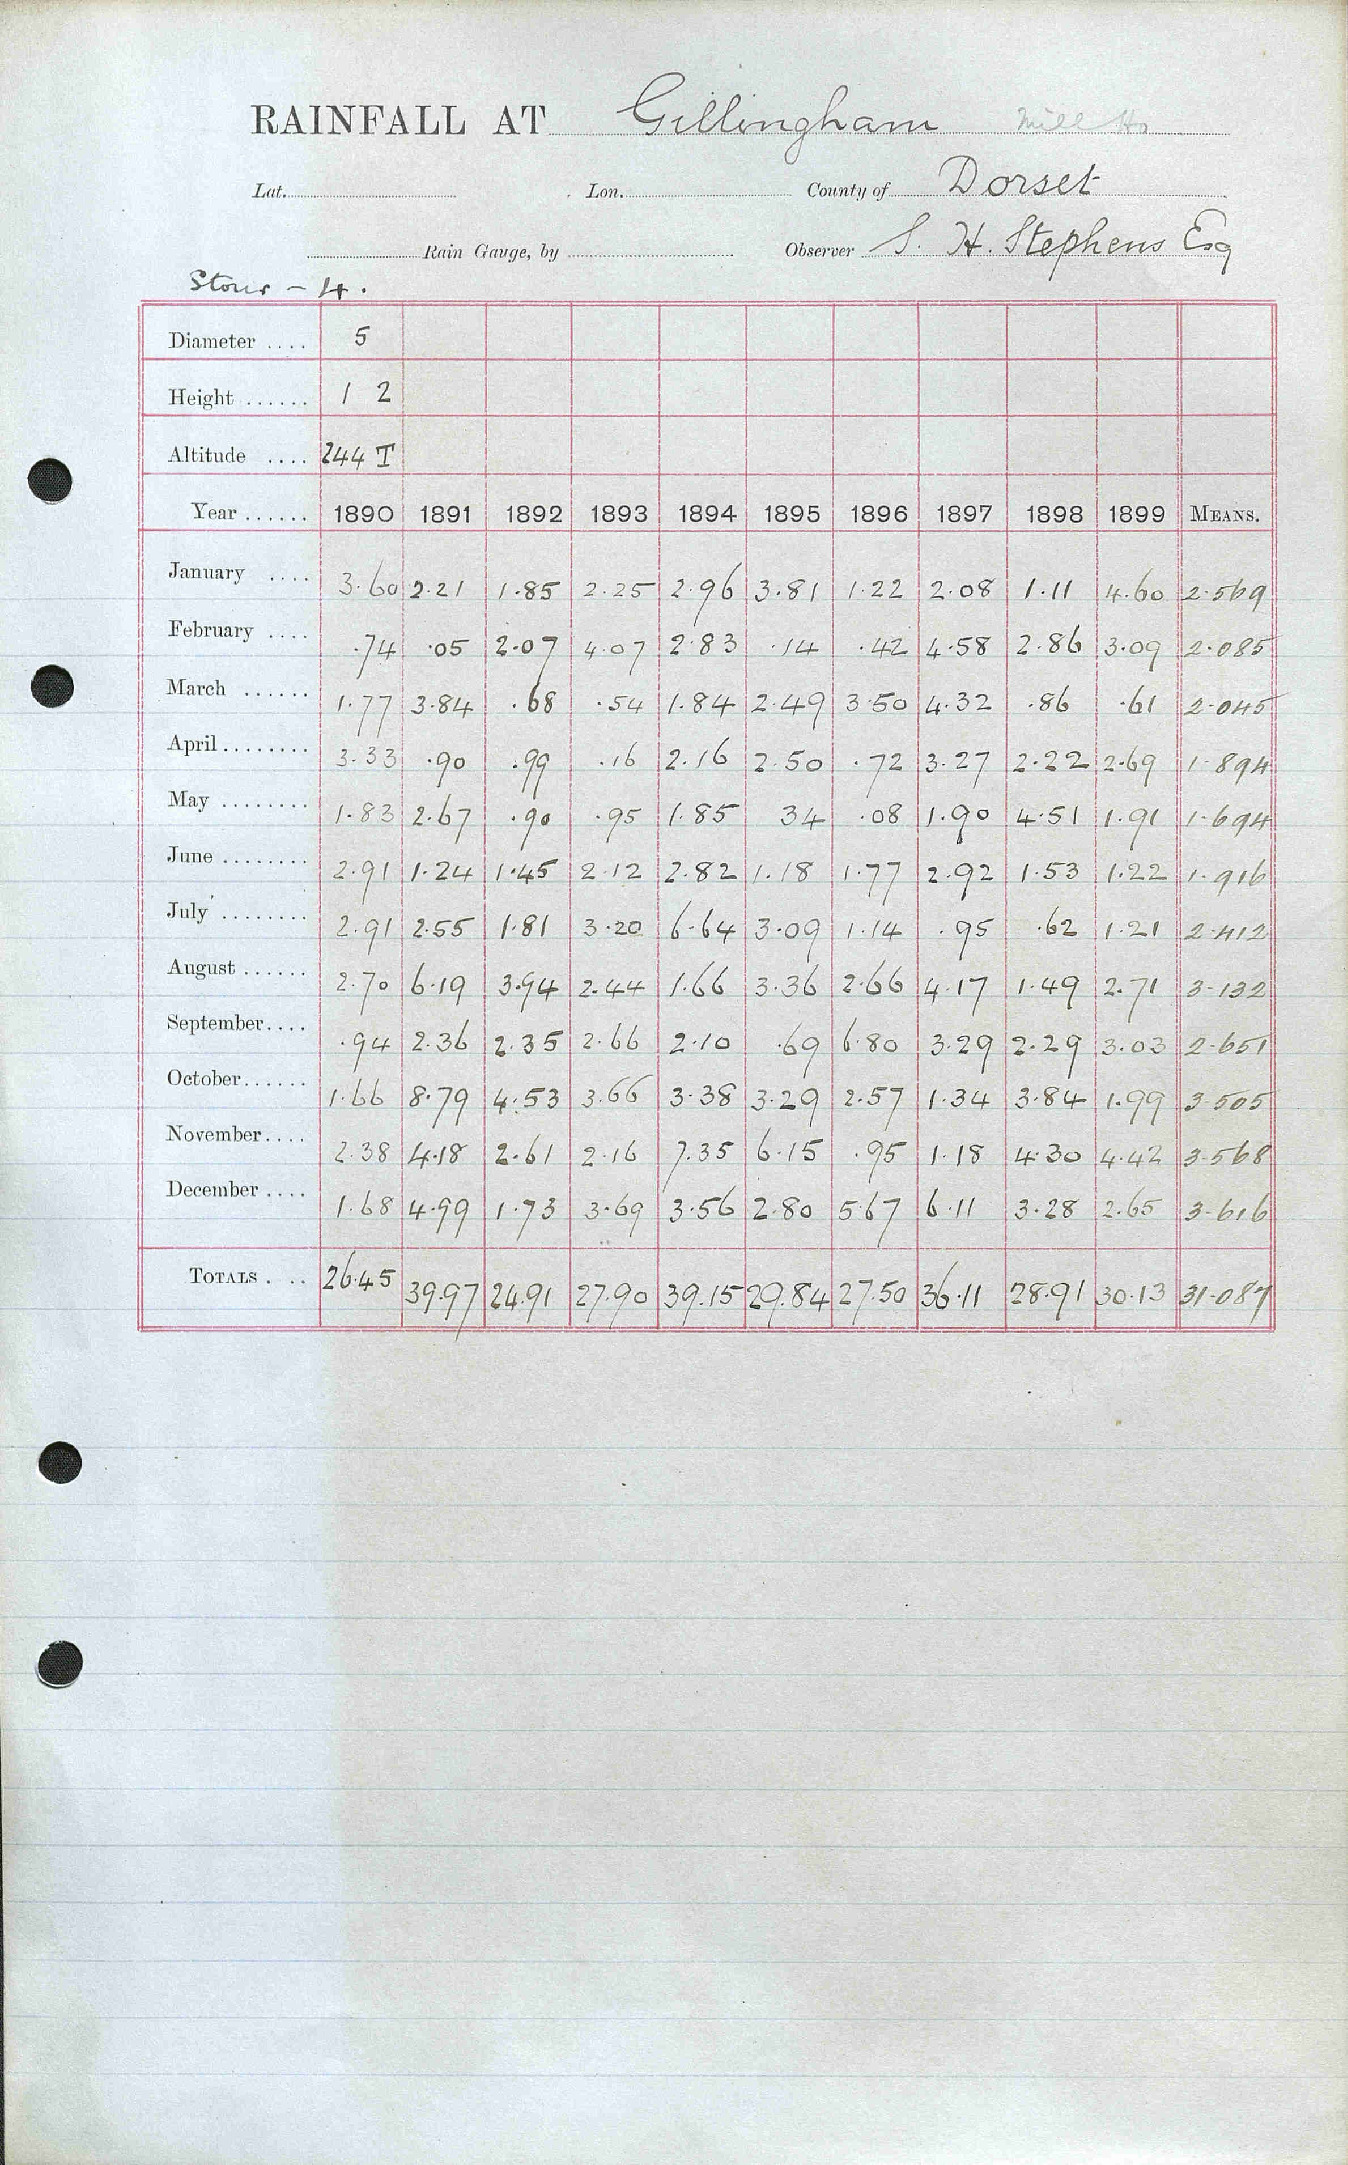 RAINFALL AT Gillingham Mill Ho
Lat. Lon. County of Dorset
Rain Gauge, by Observer S. H. Stephens Esq
Stour - 4.
Diameter .... 5
Height ...... 1 2
Altitude .... 244 T
Year ...... 1890 1891 1892 1893 1894 1895 1896 1897 1898 1899 MEANS.
January .... 3.60 2.21 1.85 2.25 2.96 3.81 1.22 2.08 1.11 4.60 2.569
February .... .74 .05 2.07 4.07 2.83 .14 .42 4.58 2.86 3.09 2.085
March ...... 1.77 3.84 .68 .54 1.84 2.49 3.50 4.32 .86 .61 2.045
April ........ 3.33 .90 .99 .16 2.16 2.50 .72 3.27 2.22 2.69 1.894
May ........ 1.83 2.67 .90 .95 1.85 34 .08 1.90 4.51 1.91 1.694
June ........ 2.91 1.24 1.45 2.12 2.82 1.18 1.77 2.92 1.53 1.22 1.916
July ........ 2.91 2.55 1.81 3.20 6.64 3.09 1.14 .95 .62 1.21 2.412
August ...... 2.70 6.19 3.94 2.44 1.66 3.36 2.66 4.17 1.49 2.71 3.132
September.... .94 2.36 2.35 2.66 2.10 .69 6.80 3.29 2.29 3.03 2.651
October...... 1.66 8.79 4.53 3.66 3.38 3.29 2.57 1.34 3.84 1.99 3.505
November.... 2.38 4.18 2.61 2.16 7.35 6.15 .95 1.18 4.30 4.42 3.568
December .... 1.68 4.99 1.73 3.69 3.56 2.80 5.67 6.11 3.28 2.65 3.616
TOTALS . .. 26.45 39.97 24.91 27.90 39.15 29.84 27.50 36.11 28.91 30.13 31.087